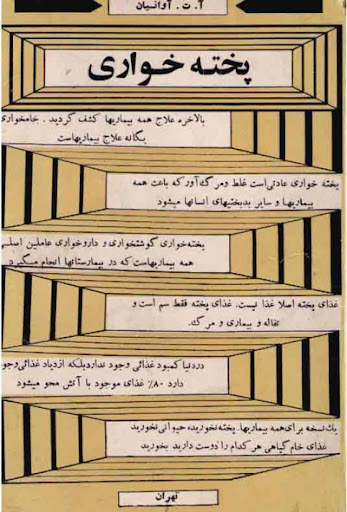 آ. ت. آوانسیان
پخته خواری
بالاخره علاج همه بیماریها کشف گردید. خامخواری
یگانه علاج بیماریهاست
پخته خواری عادتی است غلط ومرگ آور که باعث همه
بیماریها و سایر بدبختیهای انسانها میشود
پخته خواری گوشتخواری و داروخواری عاملین اصلی
همه بیماریهاست که در بیمارستانها انجام میگیرد
غذای پخته اصلا غذا نیست. غذای پخته فقط سم است و
تفاله و بیماری و مرگ.
دردنیا کمبود غذائی وجود نداردبلکه ازدیاد غذائی وجود
دارد ۸۰٪ غذای موجود با آتش محو میشود
یک نسخه برای همه بیماریها. پخته نخورید، حیوانی نخورید
غذای خام گیاهی هر کدام را دوست دارید بخورید
تهران